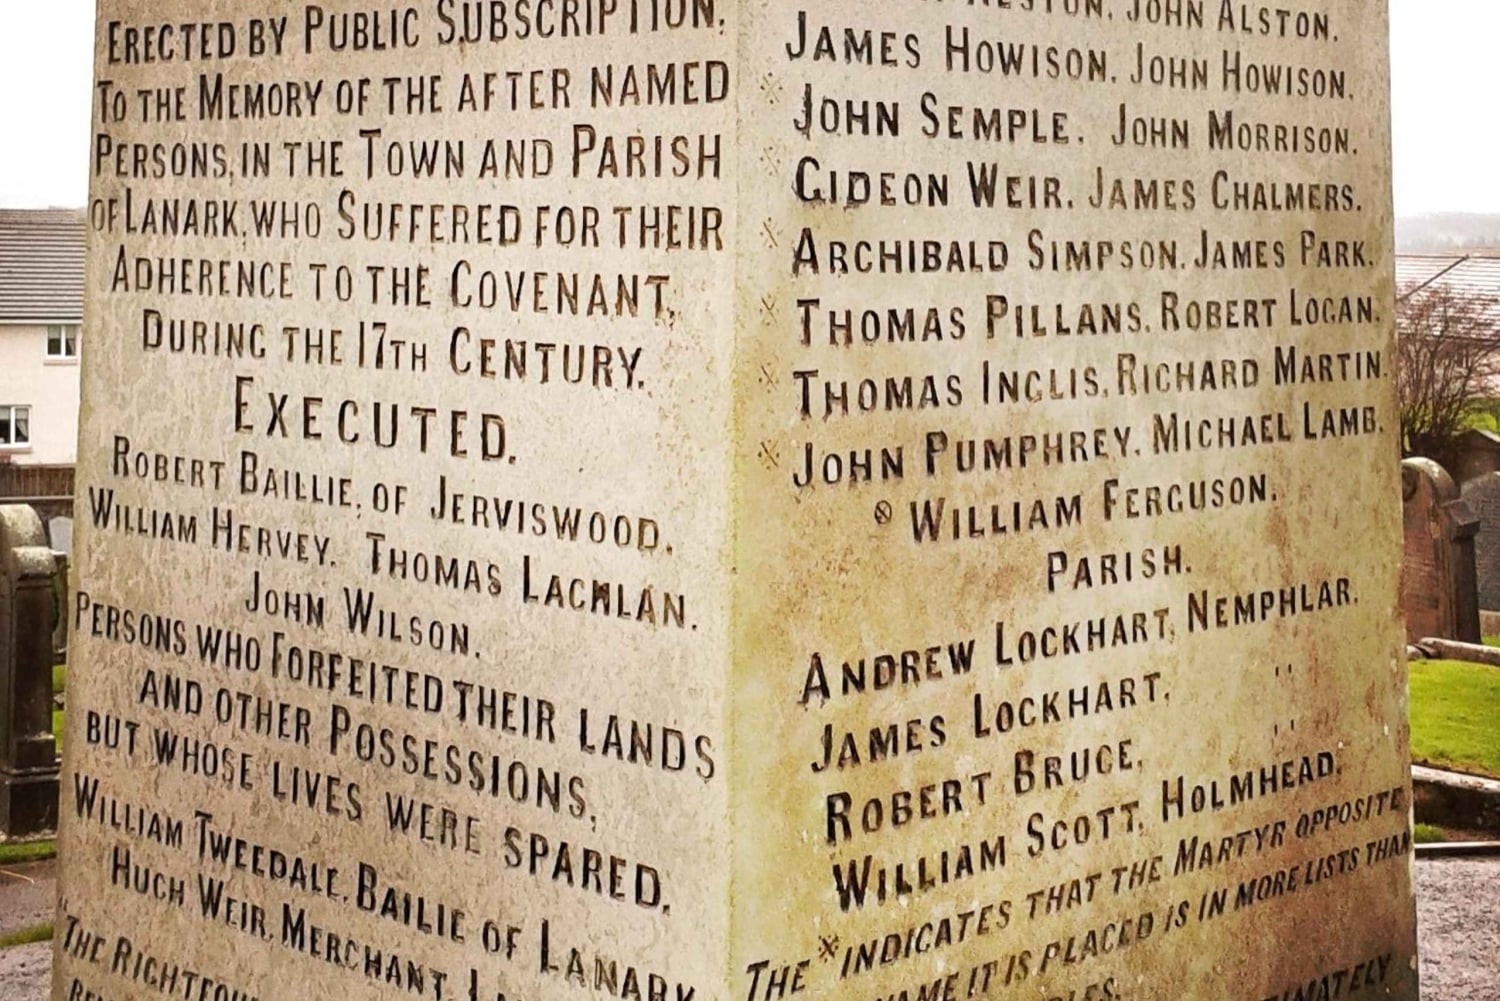 ERECTED BY PUBLIC SUBSCRIPTION,
TO THE MEMORY OF THE AFTER NAMED
PERSONS, IN THE TOWN AND PARISH
OF LANARK, WHO SUFFERED FOR THEIR
ADHERENCE TO THE COVENANT,
DURING THE 17TH CENTURY.
EXECUTED.
ROBERT BAILLIE, OF JERVISWOOD.
WILLIAM HERVEY. THOMAS LACHLAN.
JOHN WILSON.
PERSONS WHO FORFEITED THEIR LANDS
AND OTHER POSSESSIONS,
BUT WHOSE LIVES WERE SPARED.
WILLIAM TWEEDALE, BAILIE OF LANARK
HUGH WEIR, MERCHANT,
"THE RIGHTEOU
ALSTON. JOHN ALSTON.
JAMES HOWISON. JOHN HOWISON.
※ JOHN SEMPLE. JOHN MORRISON.
※ GIDEON WEIR. JAMES CHALMERS.
※ ARCHIBALD SIMPSON. JAMES PARK.
※ THOMAS PILLANS. ROBERT LOGAN.
※ THOMAS INGLIS. RICHARD MARTIN.
※ JOHN PUMPHREY. MICHAEL LAMB.
⊗ WILLIAM FERGUSON.
PARISH.
ANDREW LOCKHART, NEMPHLAR.
JAMES LOCKHART, "
ROBERT BRUCE, "
WILLIAM SCOTT, HOLMHEAD.
THE ※ INDICATES THAT THE MARTYR OPPOSITE
NAME IT IS PLACED IS IN MORE LISTS THAN